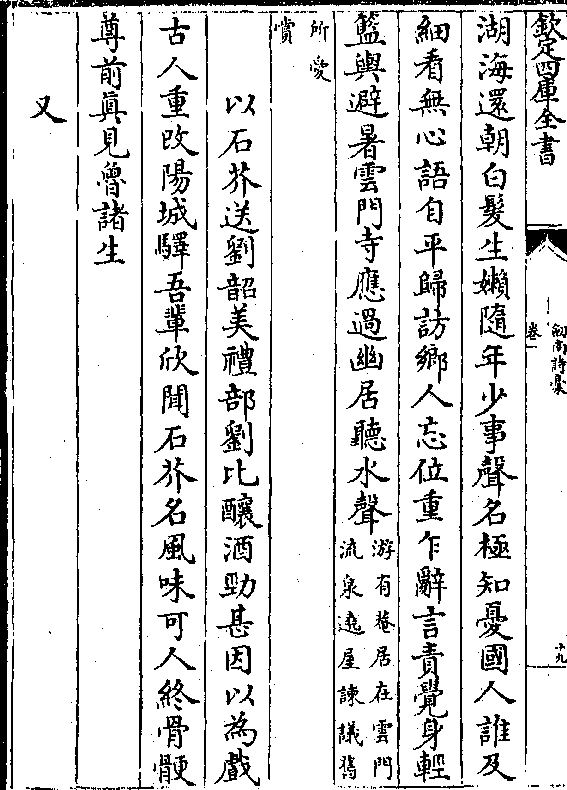 欽定四庫全書
卷一
劍南詩稾
十九
湖海還朝白髮生嬾隨年少事聲名極知憂國人誰及
細看無心語自平歸訪鄉人忘位重乍辭言責覺身輕
籃輿避暑雲門寺應過幽居聽水聲游有菴居在雲門
流泉遶屋諫議舊
所愛
賞
以石芥送劉韶美禮部劉比釀酒勁甚因以為戲
古人重改陽城驛吾輩欣聞石芥名風味可人終骨骾
尊前真見魯諸生
又